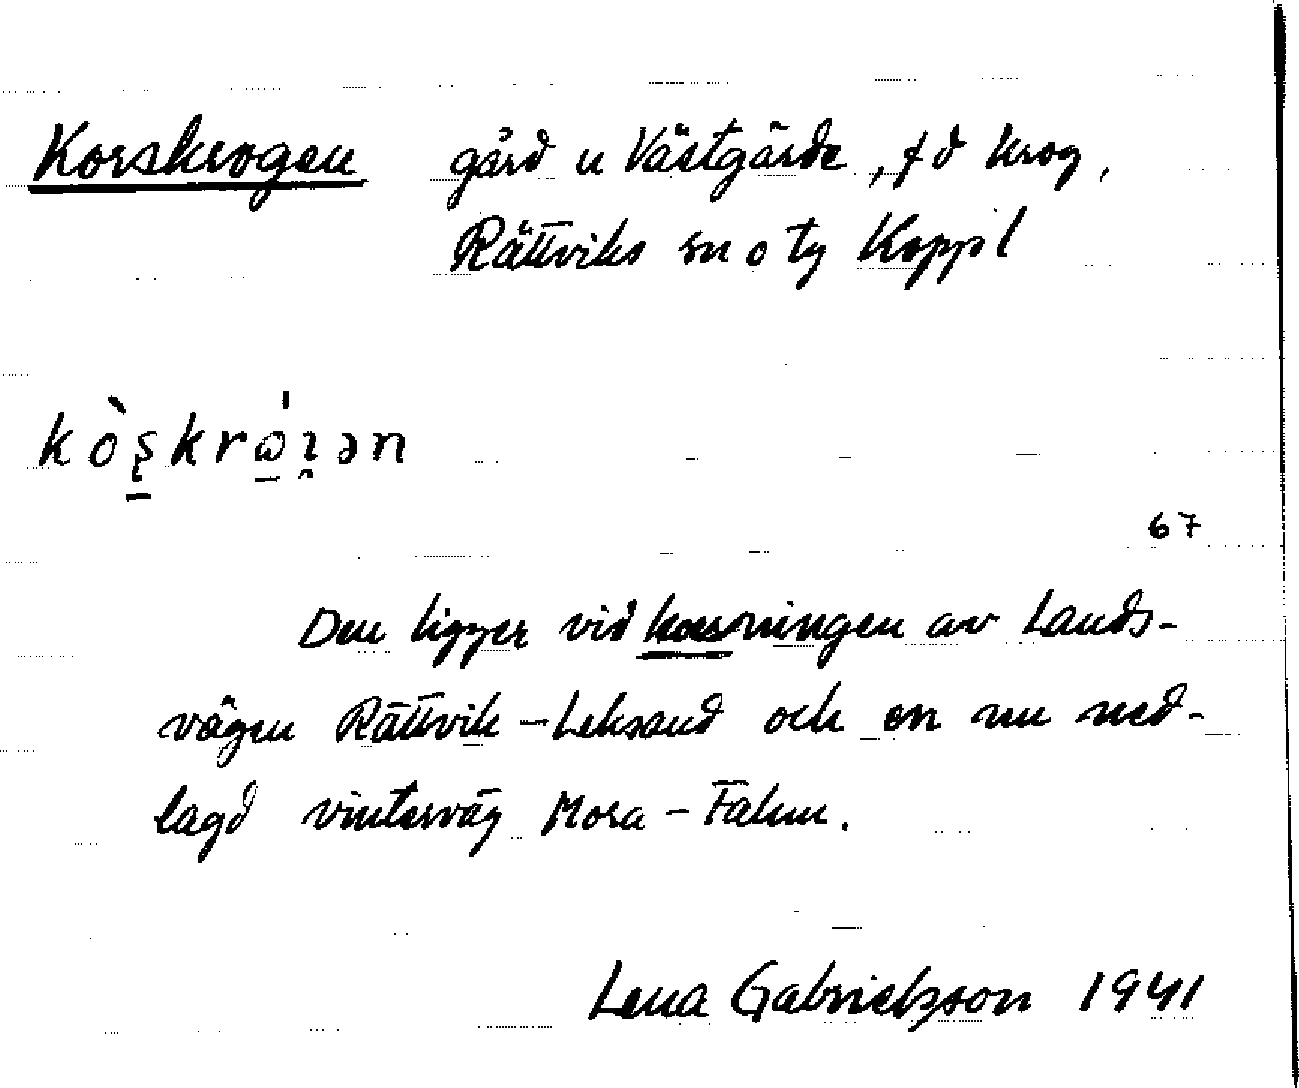 Korskrogen gård u Västgärde, f d krog,
Rättviks sn o tg Koppl
kò̀ʂkrɷ́ɪ̯ən
67
Den ligger vid korsningen av lands-
vägen Rättvik – Leksand och en nu ned-
lagd vinterväg Mora – Falun.
Lena Gabrielsson 1941